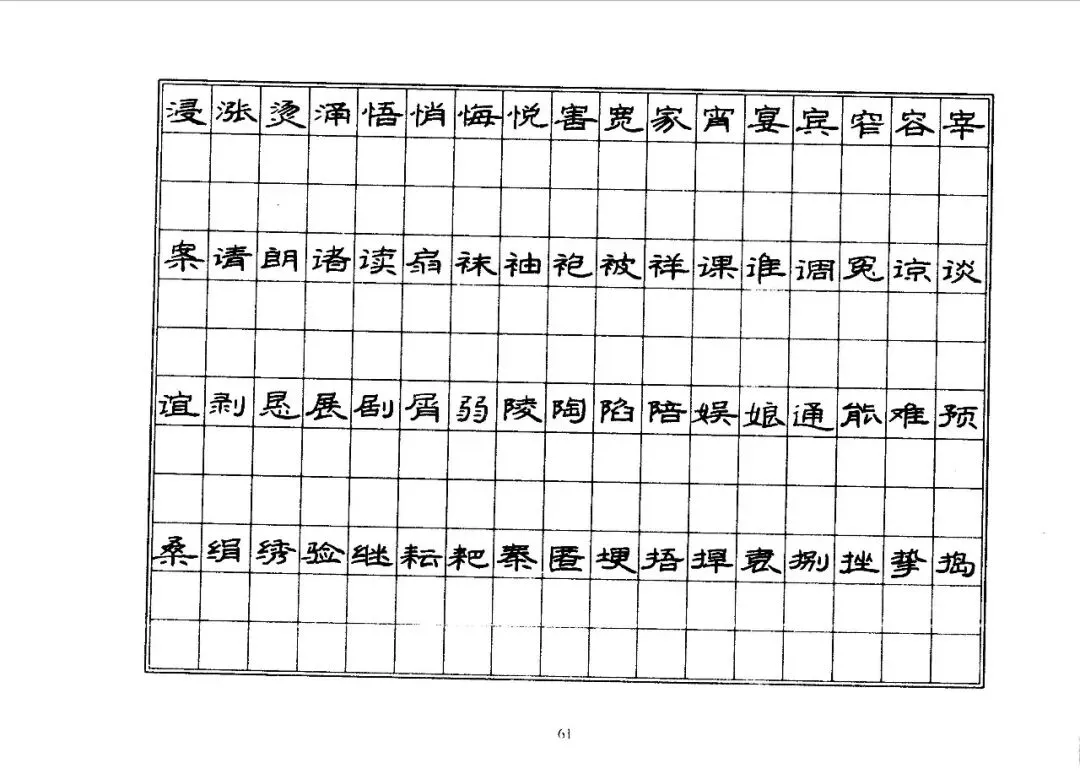 浸涨烫涌悟悄悔悦害宽家宵宴宾窄容宰
案请朗诸读扇袜袖袍被祥课谁调冤谅谈
谊剥恳展剧屑弱陵陶陷陪娱娘通能难预
桑绢绣验继耘耙秦匿埂捂捍袁捌挫挚捣
61